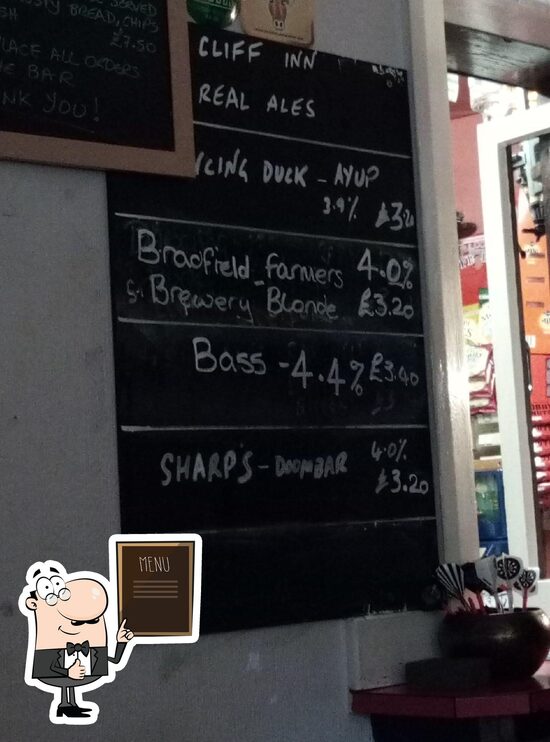 SERVED
BREAD, CHIPS
£7.50
PLACE ALL ORDERS
BAR
YOU!
CLIFF INN
REAL ALES
CING DUCK - AYUP
3.9% £3.20
Bradfield Farmers 4.0%
Brewery Blonde £3.20
Bass - 4.4% £3.40
SHARP'S - DOOMBAR 4.0%
£3.20
MENU